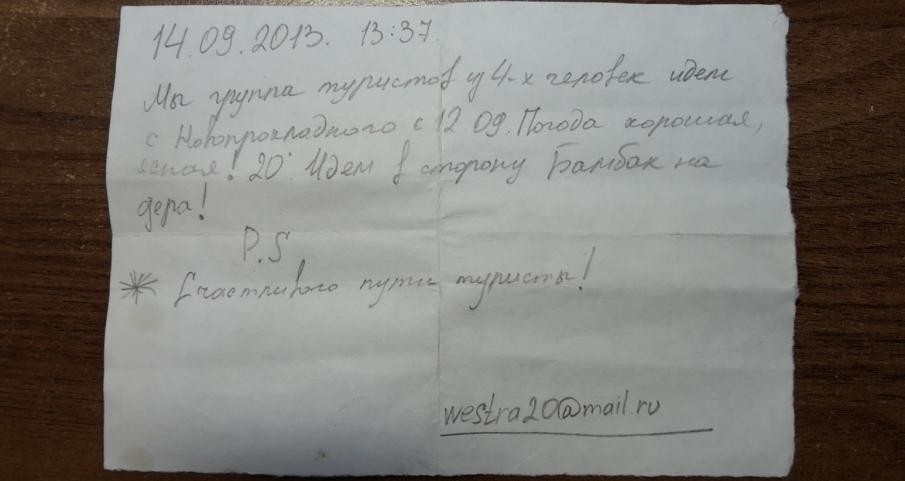 14.09.2013. 13:37.
Мы группа туристов из 4-х человек идем
с Новопрохладного с 12 09. Погода хорошая,
ясная! 20° Идем в сторону Бамбак на
дера!
P.S
Счастливого пути туристы!
westra20@mail.ru